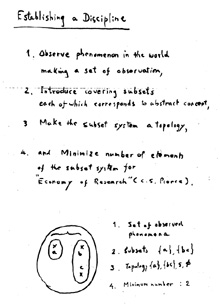 Establishing a Discipline
1. Observe phenomenon in the world
making a set of observation,
2. Introduce covering subsets
each of which corresponds to abstract concept,
3 Make the subset system a topology,
4. and Minimize number of elements
of the subset system for
"Economy of Research" (C.S. Pierce).
x
a
x
b
c
x
1. Set of observed
phenomena
2. Subsets {a}, {bc}
3. Topology {a}, {bc} S, ∅
4. Minimum number : 2